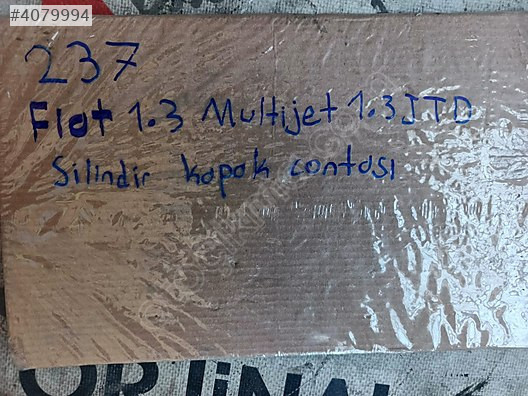 #4079994
237
Fiat 1.3 Multijet 1.3 JTD
Silindir kapak contası
ORJİNAL